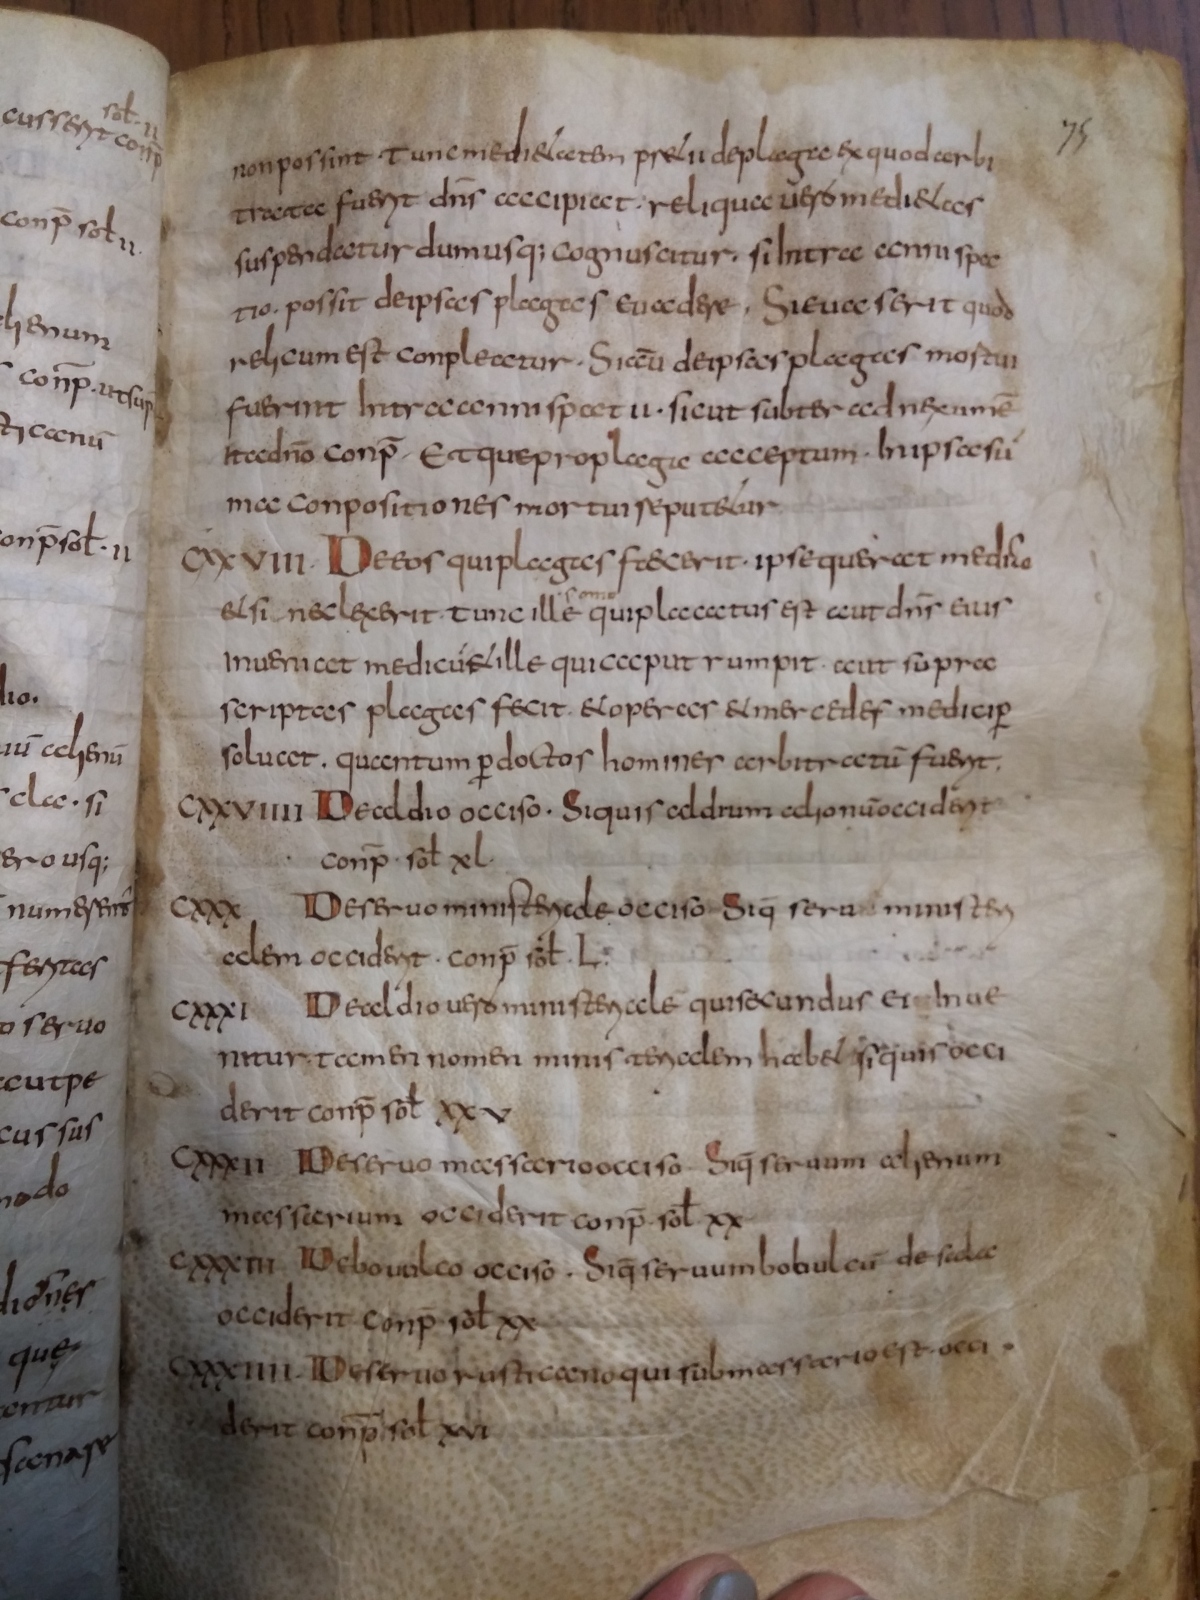 sol ii
cusserit conp̄
conp̄ sol ii.
alienum
conp̄. ut sup
sticanū
onp̄ sol. ii
dio.
uū alienū
cla. si
ero usq;
numeserit
feritas
o seruo
aut pe
cussus
modo
diones
que
entur
75
non possint. Tunc medietatem pretii de plaga ex quod arbi
tratae fuerit dns̄ accipiat. reliqua uero medietas
suspendatur dum usq; cognuscitur. si Intra anni spa
tio. possit de ipsas plagas euadere. Si euaserit quod
relicum est conpleatur. Si aū de ipsas plagas mortui
fuerint Intra anni spatii. sicut subter adnexum ē
ita dn̄o conp̄. Et que pro plaga acceptum. In ipsa sū
ma conpositiones mortui seputetur
CXXVIII. De eos qui plagas fecerit. ipse querat medico
et si neclexerit. Tunc ille qui placatus est aut dns̄ eius
somo
inueniat medicū et ille qui caput rumpit. aut supra
scriptas plagas fecit. et operas et mercedes medici p̄
soluat. quantum p̄ doctos homines arbitratū fuerit.
CXXVIIII De aldio occiso. Si quis aldium alionū occiderit
conp̄ sol xl.
CXXX De seruo ministeriale occiso Siq̄ seru minister
alem occiderit. conp̄ sol. L.
CXXXI De aldio uero ministeriale qui secundus ei Inue
nitur. tamen nomen ministerialem habet si quis occi
derit conp̄ sol XXV
CXXXII De seruo massario occiso Siq̄ seruum alienum
massarium occiderit conp̄ sol XX
CXXXIII De boualco occiso. Siq̄ seruum bobulcū de sala
occiderit conp̄ sol XX
CXXXIIII. De seruo rusticano qui sub massario est. occi
derit conp̄ sol XVI